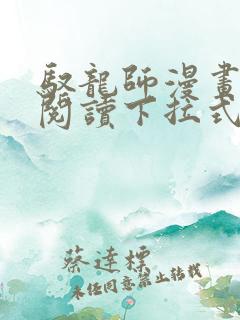 馭龍師漫畫
閱讀下拉式
蔡達標
未经同意禁止转载